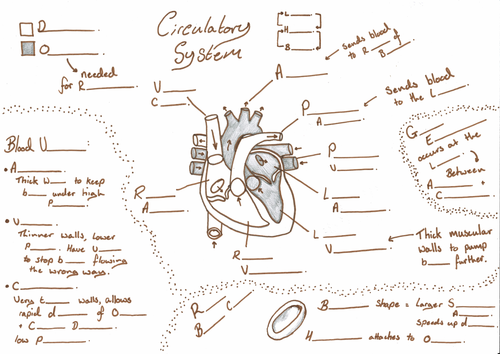 Circulatory
System
D_____
O_____
needed
for R_____
L_____
H_____
B_____
A_____
sends blood
to R_____ of
B_____
V_____
C_____
P_____
A_____
Sends blood
to the L_____
P_____
V_____
L_____
A_____
L_____
V_____
R_____
A_____
R_____
V_____
Thick muscular
walls to pump
b_____ further.
G_____
E_____
occurs at the
L_____.
Between
A_____ +
C_____
Blood V_____
• A_____
Thick w_____ to keep
b_____ under high
p_____.
• V_____
Thinner walls, lower
p_____. Have v_____
to stop b_____ flowing
the wrong ways.
• C_____
Very t_____ walls, allows
rapid d_____ of O_____
• C_____ D_____.
low p_____.
R_____
B_____ C_____
B_____ shape = larger S_____
A_____
speeds up d_____
H_____ attaches to O_____.